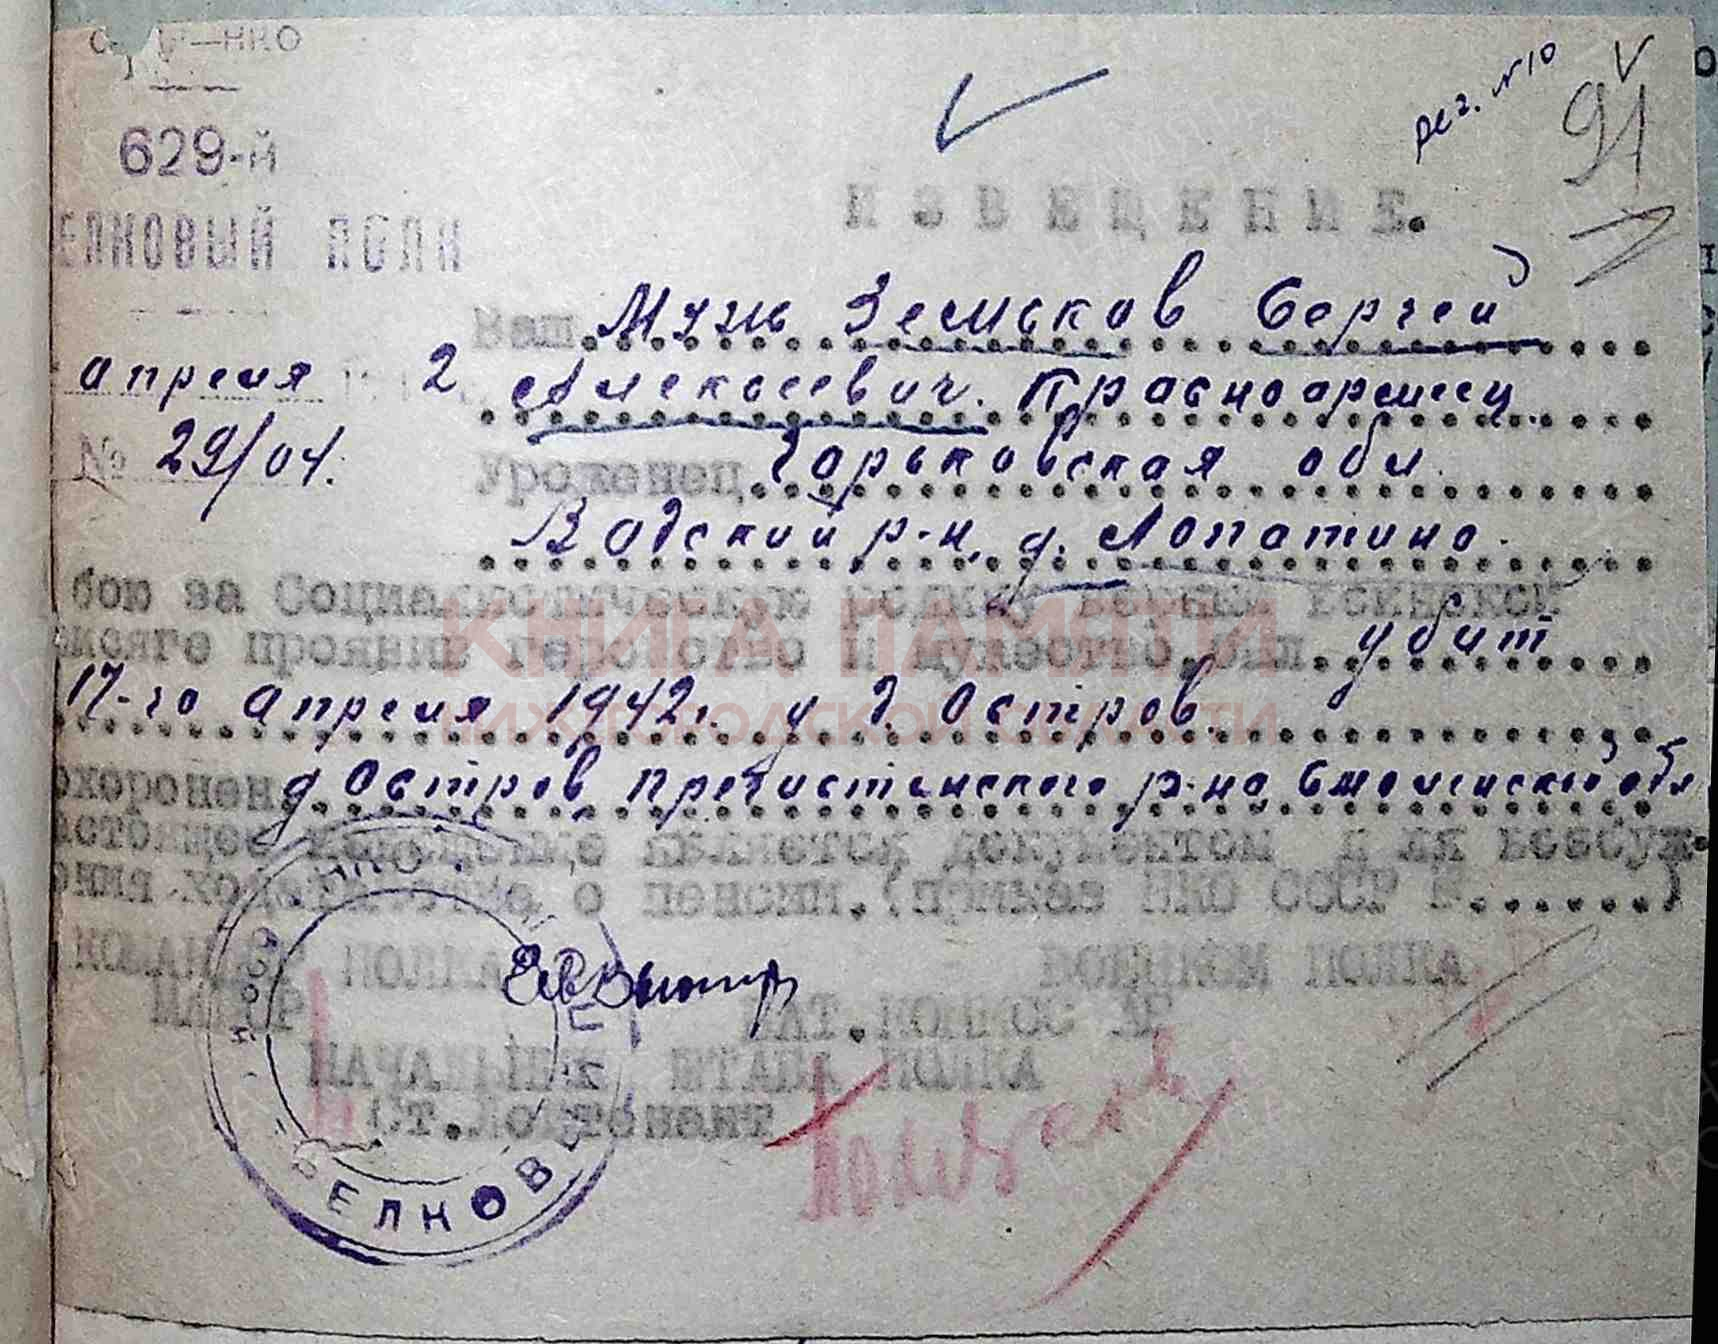 НКО
рег. № 10
91
629-й
ЕЛКОВЫЙ ПОЛК
ИЗВЕЩЕНИЕ.
Ваш Мужь Земсков Сергей
апреля 2
Алексеевич. Красноармеец
№ 29/04.
Уроженец Горьковская обл.
Вадский р-н, д. Лопатино.
бою за Социалистическую родину верный воинской
присяге проявив геройство и мужество, был убит
17-го апреля 1942 г. у д. Остров.
охоронен д Остров Пречистенского р-на Смоленской обл
астоящее извещение является документом для возбуж-
ения ходатайства о пенсии. (приказ НКО СССР №.......)
КОМАНДИР ПОЛКА
ВОЕНКОМ ПОЛКА
МАЙОР
БАТ.КОМИССАР
НАЧАЛЬНИК ШТАБА ПОЛКА
Ст.Лейтенант
НКО
ЕЛКОВ
КНИГА ПАМЯТИ
НИЖЕГОРОДСКОЙ ОБЛАСТИ